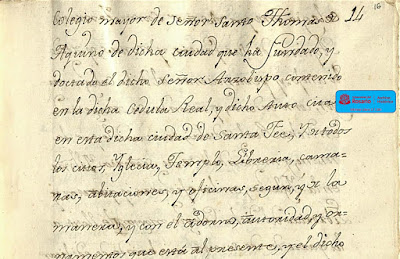 Colegio mayor de Señor Santo Thomas de 14
Aquino de dicha ciudad que ha fundado, y
doctado el dicho señor Arzobispo contenido
en la dicha Cedula Real, y dicho Auto citado
en esta dicha ciudad de Santa Fee, Con todos
los citos, Yglecia, Templo, Libreria, campa-
nas, abitaciones, y oficinas, segun, y a la
manera, y con el adorno, autoridad, y or-
namentos que está al presente, y el dicho